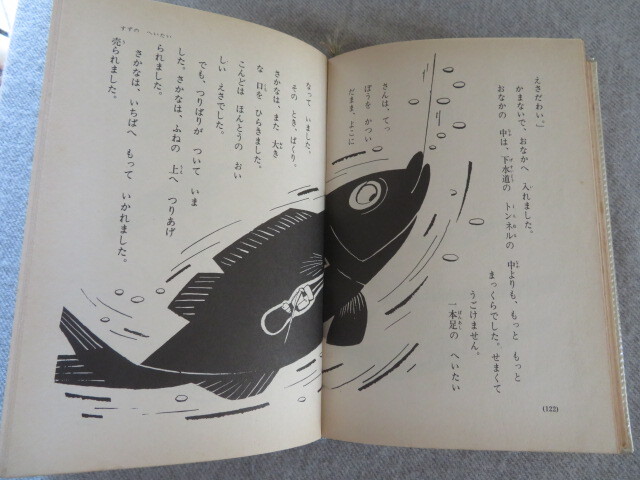 えさだわい。」
かまないで、おなかへ 入れました。
おなかの 中は、下水道の トンネルの 中よりも、もっと もっと
まっくらでした。せまくて
うごけません。
一本足の へいたい
さんは、てっ
ぽうを かつい
だまま、よこに
(122)
すずの へいたい
なって いました。
その とき、ぱくり、
さかなは、また 大き
な 口を ひらきました。
こんどは ほんとうの おい
しい えさでした。
でも、つりばりが ついて いま
した。さかなは、ふねの 上へ つりあげ
られました。
さかなは、いちばへ もって いかれました。
売られました。